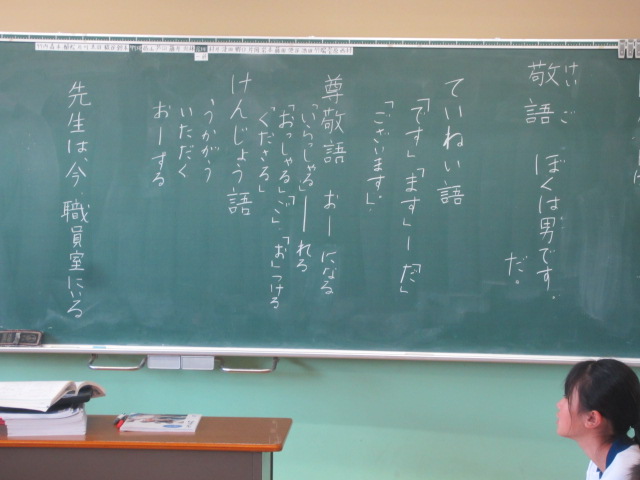 敬語 ぼくは男です。
けい ご
だ。
ていねい語
「です」「ます」ー「だ」
「ございます」
尊敬語 おーになる
「いらっしゃる」ーれる
「おっしゃる」「ご」「お」つける
「くださる」
けんじょう語
うかがう
いただく
おーする
先生は、今、職員室にいる